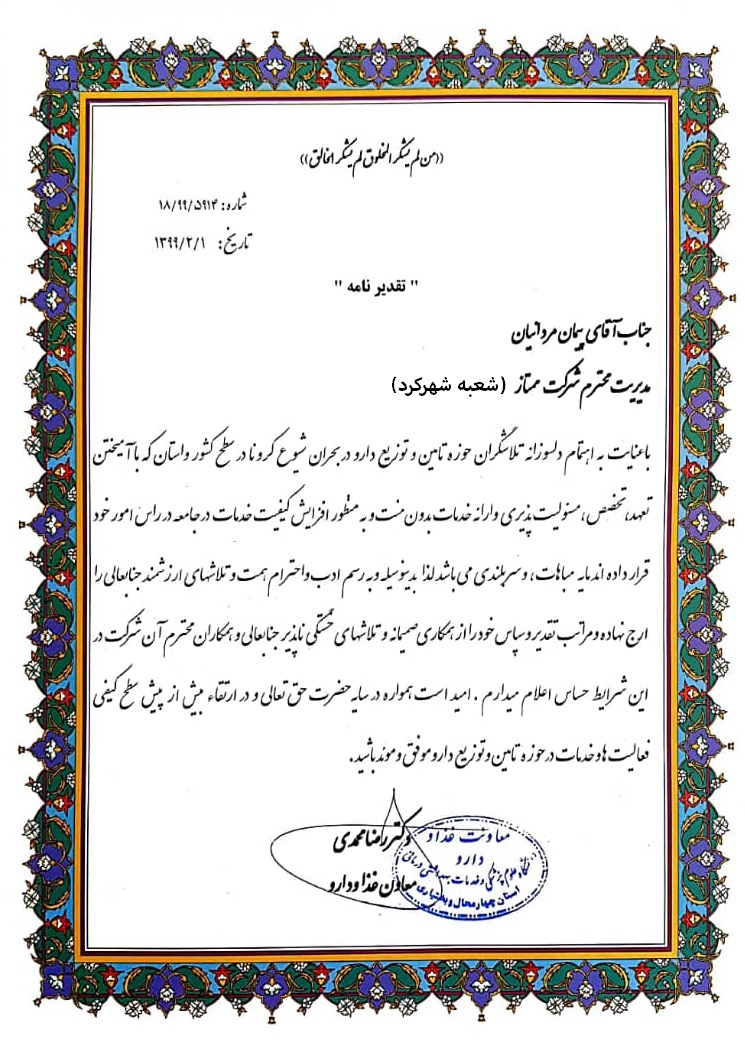 ((من لم یشکر المخلوق لم یشکر الخالق))
شماره: ۱۸/۹۹/۵۹۱۴
تاریخ: ۱۳۹۹/۲/۱
" تقدیر نامه "
جناب آقای پیمان مردانیان
مدیریت محترم شرکت ممتاز (شعبه شهرکرد)
باعنایت به اهتمام دلسوزانه تلاشگران حوزه تامین و توزیع دارو در بحران شیوع کرونا در سطح کشور واستان که با آمیختن
تعهد، تخصص، مسئولیت پذیری وارائه خدمات بدون منت و به منظور افزایش کیفیت خدمات در جامعه در راس امور خود
قرار داده اند مایه مباهات، و سربلندی می باشد لذا بدینوسیله وبه رسم ادب و احترام همت و تلاشهای ارزشمند جنابعالی را
ارج نهاده و مراتب تقدیر و سپاس خود را از همکاری صمیمانه و تلاشهای خستگی ناپذیر جنابعالی و همکاران محترم آن شرکت در
این شرایط حساس اعلام میدارم . امید است همواره در سایه حضرت حق تعالی و در ارتقاء بیش از پیش سطح کیفی
فعالیت ها و خدمات در حوزه تامین و توزیع دارو موفق و موید باشید.
دکتر رضا محمدی
معاون غذا و دارو
معاونت غذا و
دارو
دانشگاه علوم پزشکی و خدمات بهداشتی درمانی
استان چهارمحال و بختیاری